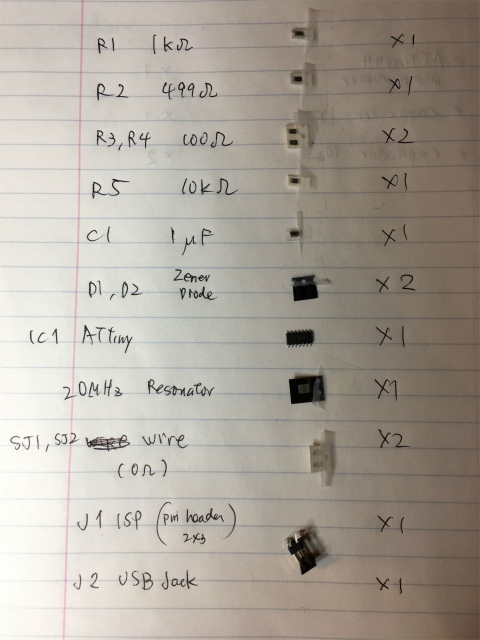 R1 1kΩ X1
R2 499Ω X1
R3, R4 100Ω X2
R5 10kΩ X1
C1 1μF X1
D1, D2 Zener Diode X2
IC1 ATTiny X1
20MHz Resonator X1
SJ1, SJ2 wire X2
(0Ω)
J1 ISP (pin header 2x3) X1
J2 USB Jack X1